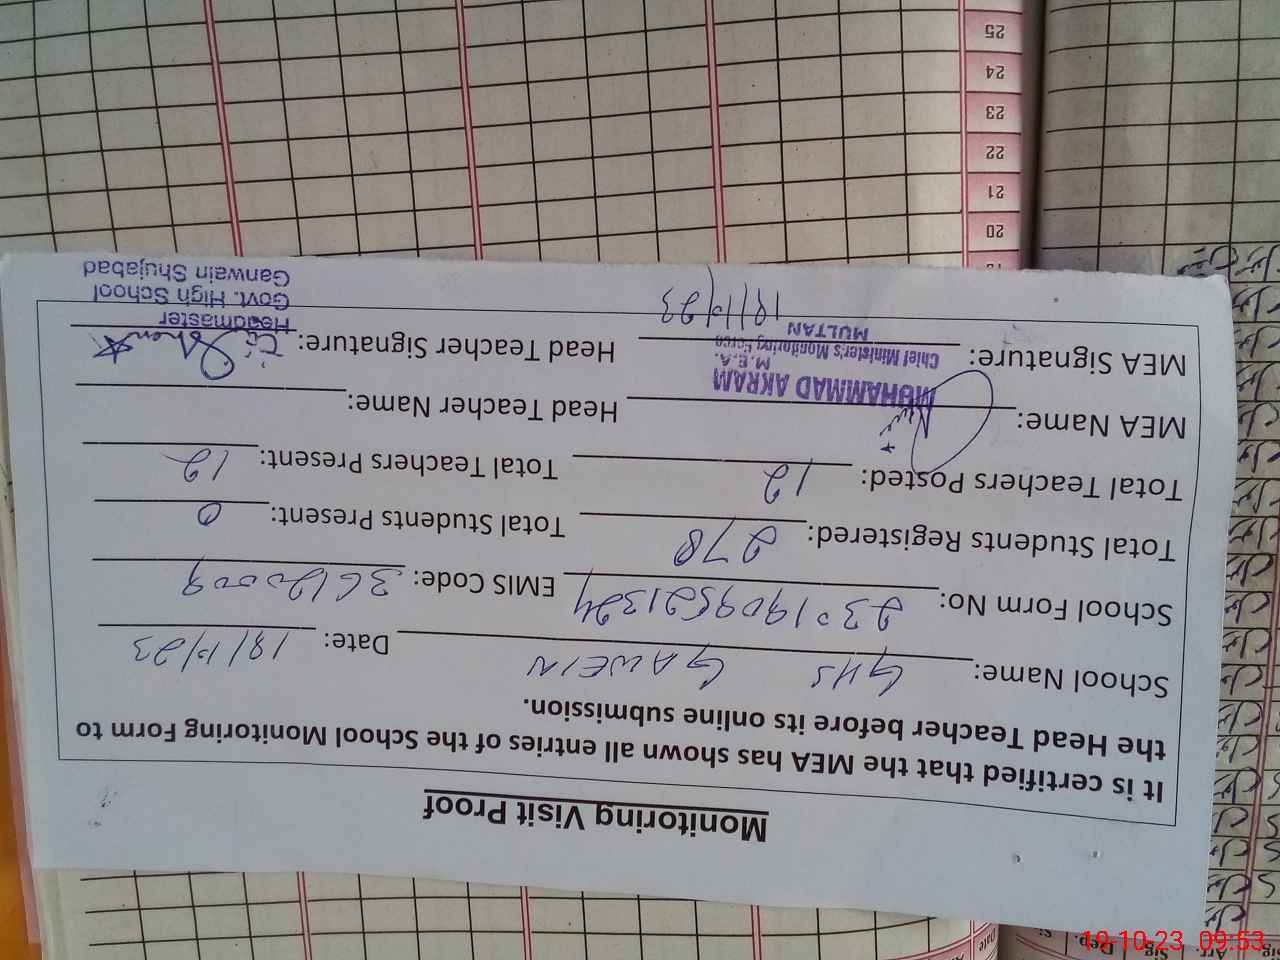 Monitoring Visit Proof
It is certified that the MEA has shown all entries of the School Monitoring Form to
the Head Teacher before its online submission.
School Name: GHS GAWEIN Date: 18/10/23
School Form No: EMIS Code:
Total Students Registered: 278 Total Students Present: 0
Total Teachers Posted: 12 Total Teachers Present: 12
MEA Name: Head Teacher Name:
MUHAMMAD AKRAM
M.E.A.
Chief Minister's Monitoring Force
MULTAN
MEA Signature: Head Teacher Signature:
18/10/23
Headmaster
Govt. High School
Ganwain Shujabad
20
21
22
23
24
25
Date
Sig.
Dep.
Sig.
Arr.
19-10-23 09:53